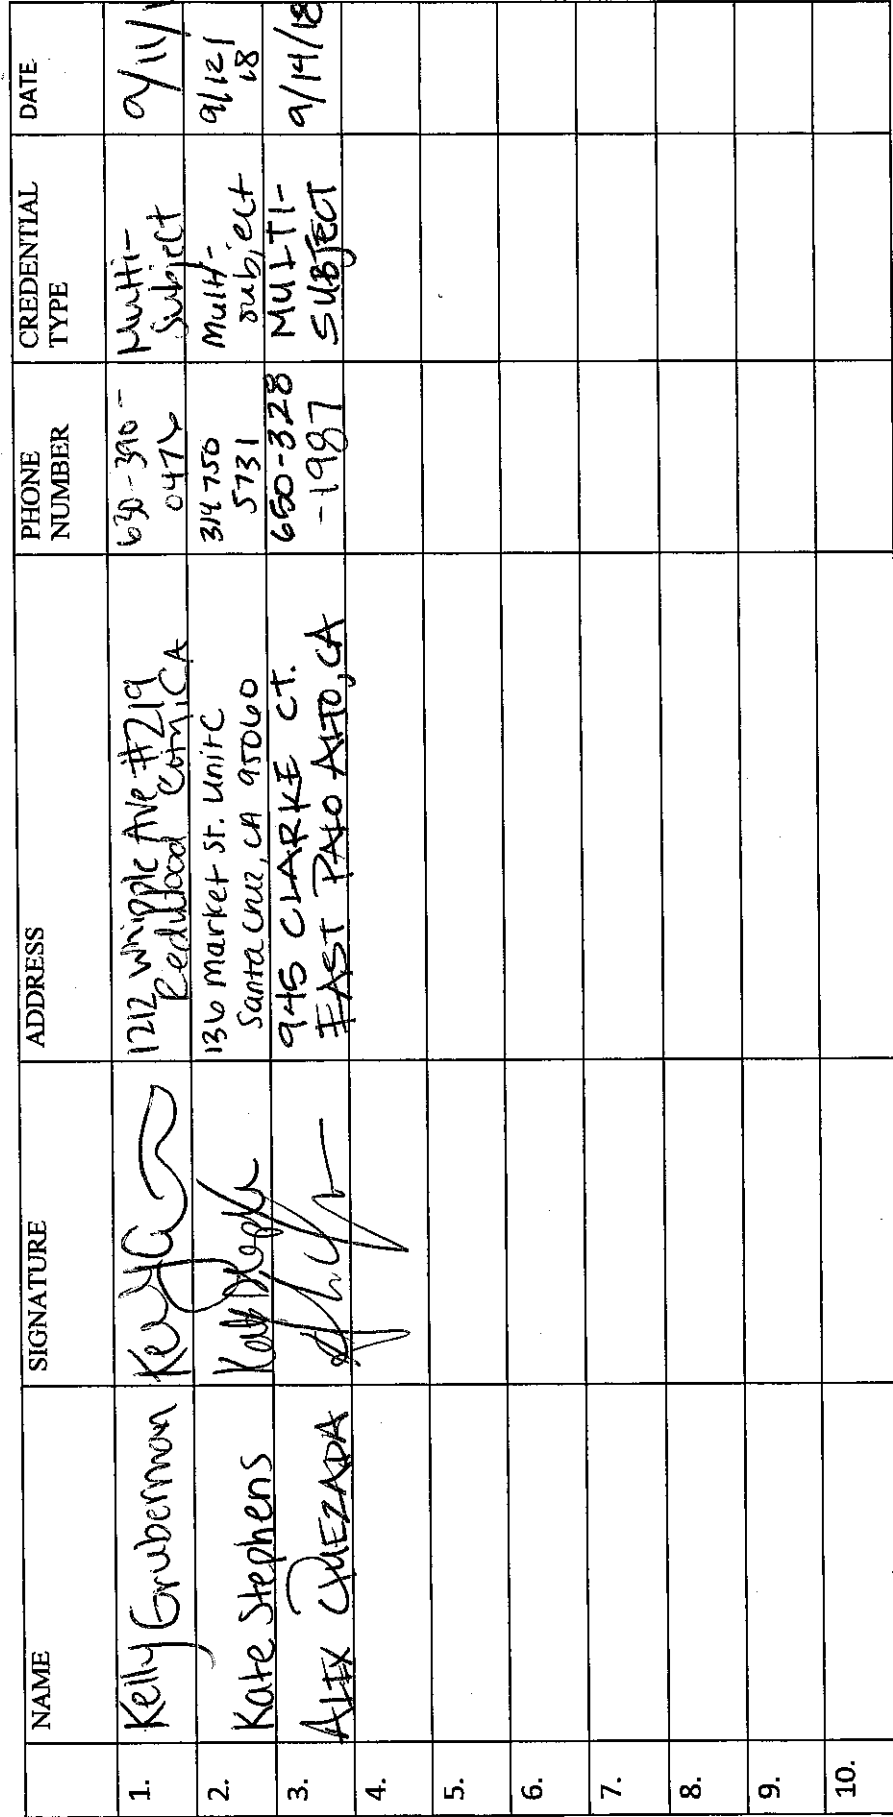 NAME
SIGNATURE
ADDRESS
PHONE
NUMBER
CREDENTIAL
TYPE
DATE
1.
Kelly Gruberman
1212 Whipple Ave #219
Redwood City, CA
630-390-
0476
Multi-
Subject
9/11/1
2.
Kate Stephens
136 Market St. Unit C
Santa Cruz, CA 95060
314 750
5731
Multi-
subject
9/12/
18
3.
ALEX QUEZADA
945 CLARKE CT.
EAST PALO ALTO, CA
650-328
-1987
MULTI-
SUBJECT
9/14/18
4.
5.
6.
7.
8.
9.
10.